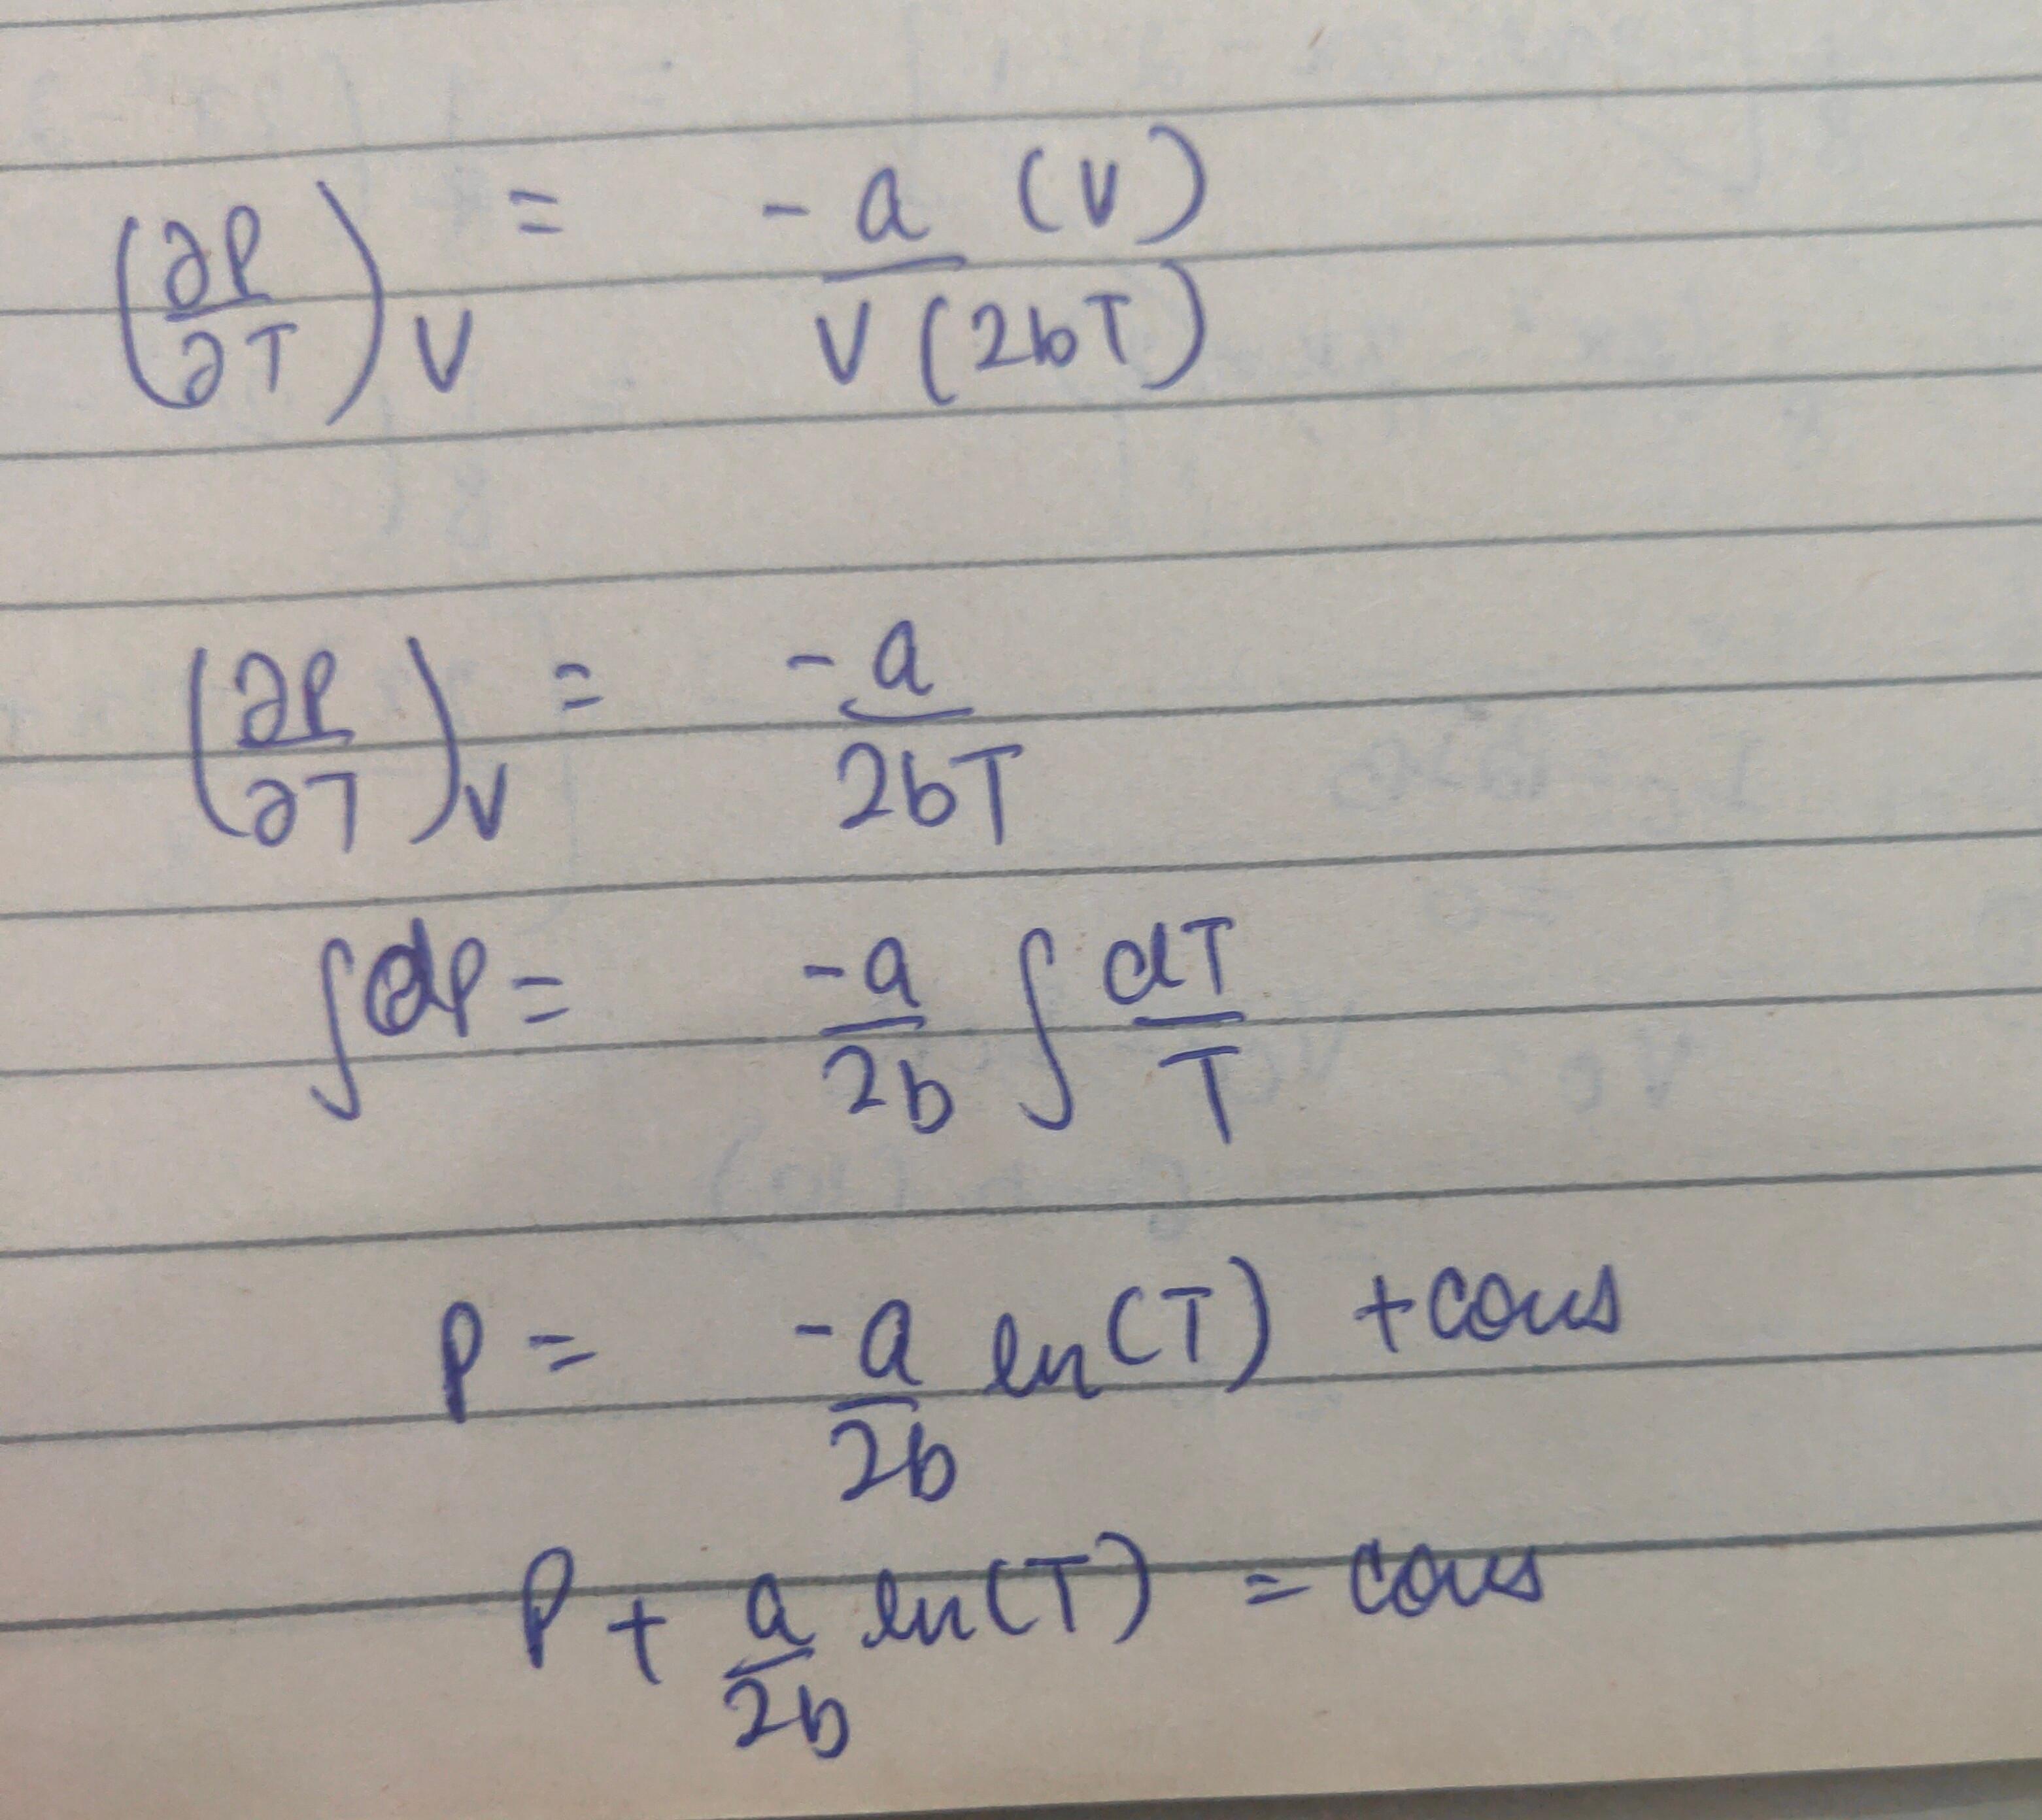 (∂P/∂T)_V = -a (V) / V (2bT)
(∂P/∂T)_V = -a / 2bT
∫dP = -a/2b ∫ dT/T
P = -a/2b ln(T) + cons
P + a/2b ln(T) = cons